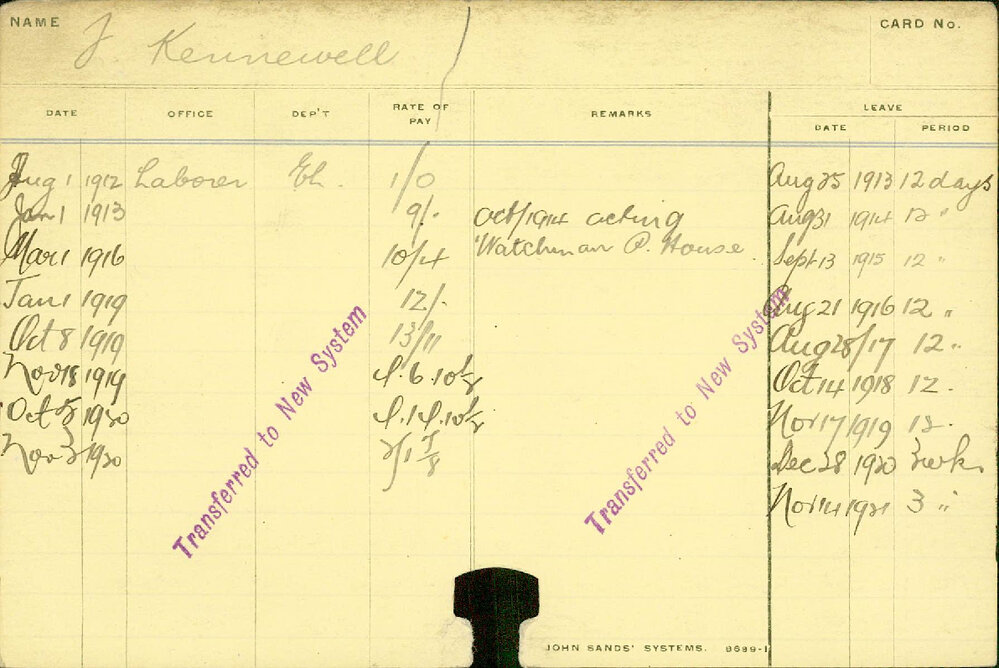 NAME
J Kennewell
CARD No.
DATE OFFICE DEP'T RATE OF PAY REMARKS LEAVE
DATE PERIOD
Aug 1 1912 Laborer Eh. 1/0 Aug 25 1913 12 days
Jan 1 1913 9/. Oct/1914 acting Aug 31 1914 12 "
Mar 1 1916 10/4 Watchman P. House. Sept 13 1915 12 "
Jan 1 1919 12/. Aug 21 1916 12 "
Oct 8 1919 13/11 Aug 28/17 12 "
Nov 18 1919 Oct 14 1918 12 .
Oct 1920 Nov 17 1919 12 .
Nov 1920 Dec 28 1920 3 wks
Nov 14 1921 3 "
Transferred to New System
Transferred to New System
JOHN SANDS' SYSTEMS. 8699-1